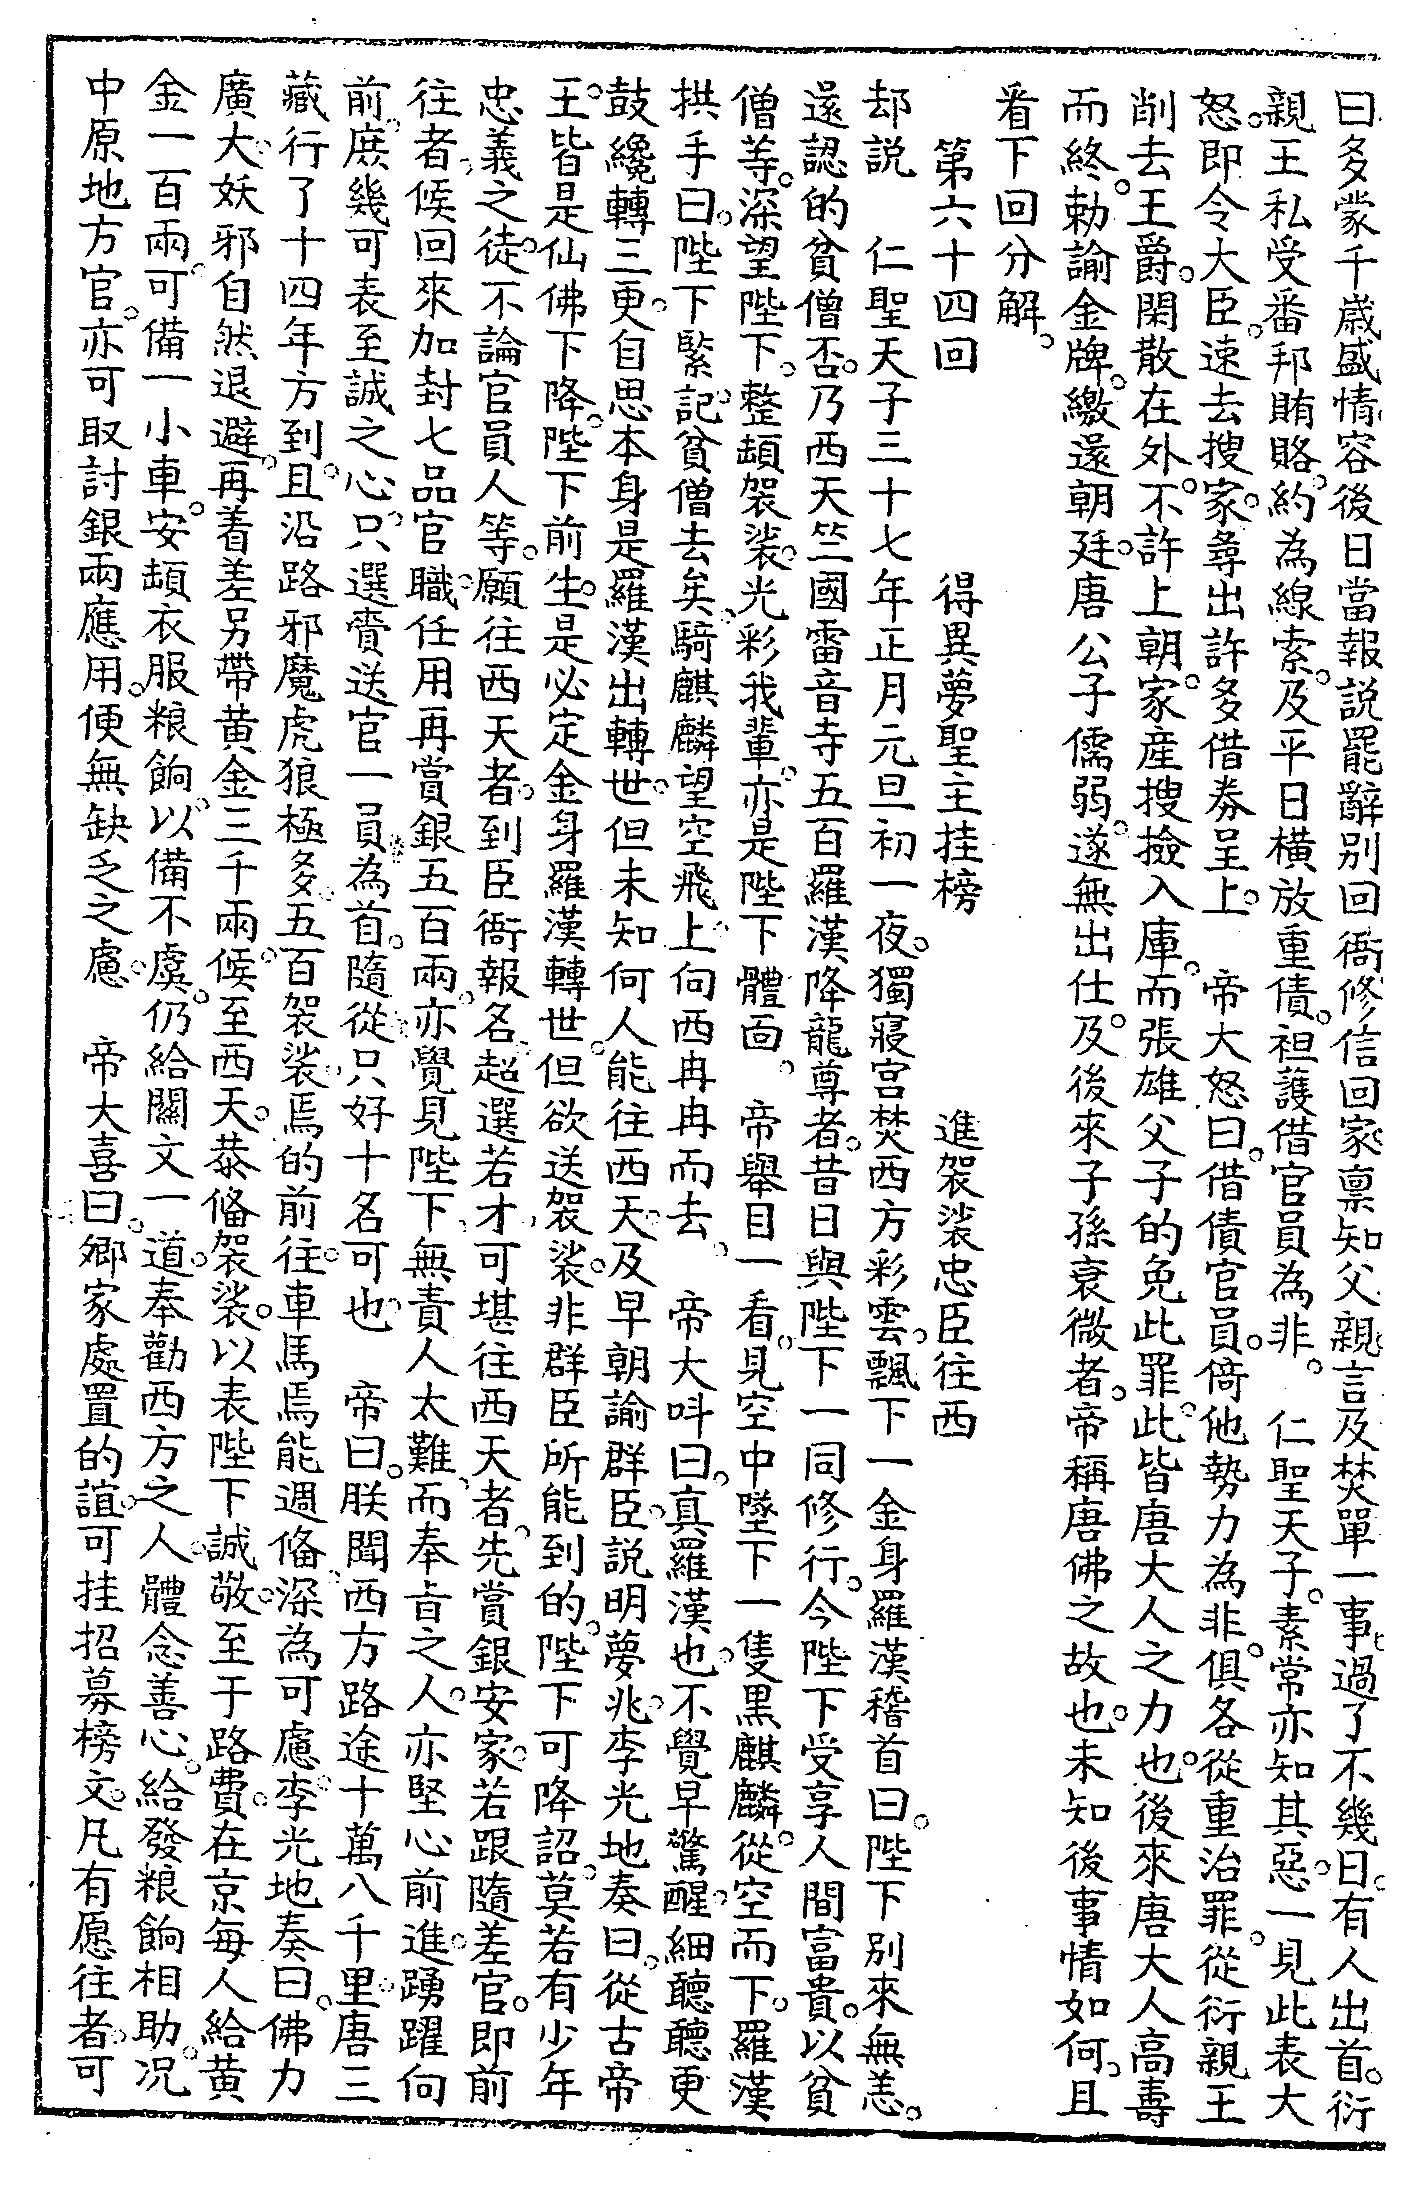 曰多蒙千歲盛情容後日當報說罷辭別回衙修信回家禀知父親言及焚單一事過了不幾日有人出首衍
親王私受番邦賄賂約為線索及平日橫放重債袒護借官員為非。　仁聖天子素常亦知其惡一見此表大
怒即令大臣速去搜家尋出許多借券呈上　帝大怒曰借債官員倚他勢力為非俱各從重治罪從衍親王
削去王爵閑散在外不許上朝家産搜撿入庫而張雄父子的免此罪此皆唐大人之力也後來唐大人高壽
而終勅諭金牌繳還朝廷唐公子儒弱遂無出仕及後來子孫衰微者帝稱唐佛之故也未知後事情如何且
看下回分解。
第六十四回　得異夢聖主挂榜　進袈裟忠臣往西
却説　仁聖天子三十七年正月元旦初一夜獨寢宮焚西方彩雲飄下一金身羅漢稽首曰陛下別來無恙。
還認的貧僧否乃西天竺國雷音寺五百羅漢降龍尊者昔日與陛下一同修行今陛下受享人間富貴以貧
僧等深望陛下整頓袈裟光彩我輩亦是陛下體面。　帝舉目一看見空中墜下一隻黑麒麟從空而下羅漢
拱手曰陛下緊記貧僧去矣騎麒麟望空飛上向西冉冉而去　帝大呌曰真羅漢也不覺早驚醒細聽聽更
鼓纔轉三更自思本身是羅漢出轉世但未知何人能往西天及早朝諭群臣說明夢兆李光地奏曰從古帝
王皆是仙佛下降陛下前生是必定金身羅漢轉世但欲送袈裟非群臣所能到的陛下可降詔莫若有少年
忠義之徒不論官員人等願往西天者到臣衙報名超選若才可堪往西天者先賞銀安家若跟隨差官即前
往者候回來加封七品官職任用再賞銀五百兩亦覺見陛下無責人太難而奉旨之人亦堅心前進踴躍向
前庶幾可表至誠之心只選賫送官一員為首隨從只好十名可也　帝曰朕聞西方路途十萬八千里唐三
藏行了十四年方到且沿路邪魔虎狼極多五百袈裟焉的前往車馬焉能週俻深為可慮李光地奏曰佛力
廣大妖邪自然退避再着差另帶黃金三千兩候至西天恭俻袈裟以表陛下誠敬至于路費在京每人給黃
金一百兩可備一小車安頓衣服粮餉以備不虞仍給關文一道奉勸西方之人體念善心給發粮餉相助况
中原地方官亦可取討銀兩應用便無缺乏之慮　帝大喜曰鄉家處置的誼可挂招募榜文凡有愿往者可